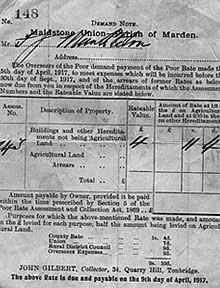 No. 148
DEMAND NOTE.
Maidstone Union—Parish of Marden.
Mr.
Address
The Overseers of the Poor demand payment of the Poor Rate made the
5th day of April, 1917, to meet expenses which will be incurred before the
30th day of Sept., and of the arrears of former Rates as below
now due from you in respect of the Hereditaments of which the Assessment
Numbers and the Rateable Value are stated below.
Assess. No.
Description of Property.
Rateable Value.
Amount of Rate at
Buildings and other Heredita-
ments not being Agricultural
Land
4
Agricultural Land
Arrears
Total
Amount payable by Owner, provided it be paid
within the time prescribed by Section 5 of the
Poor Rate Assessment and Collection Act, 1869
Purposes for which the above-mentioned Rate was made, and amount
in the £ levied for each purpose, half the amount being levied on Agricul-
tural Land.
County Rate
Union
Rural District Council
Overseers Expenses
JOHN GILBERT, Collector, 34, Quarry Hill, Tonbridge.
The above Rate is due and payable on the 9th day of April, 1917.